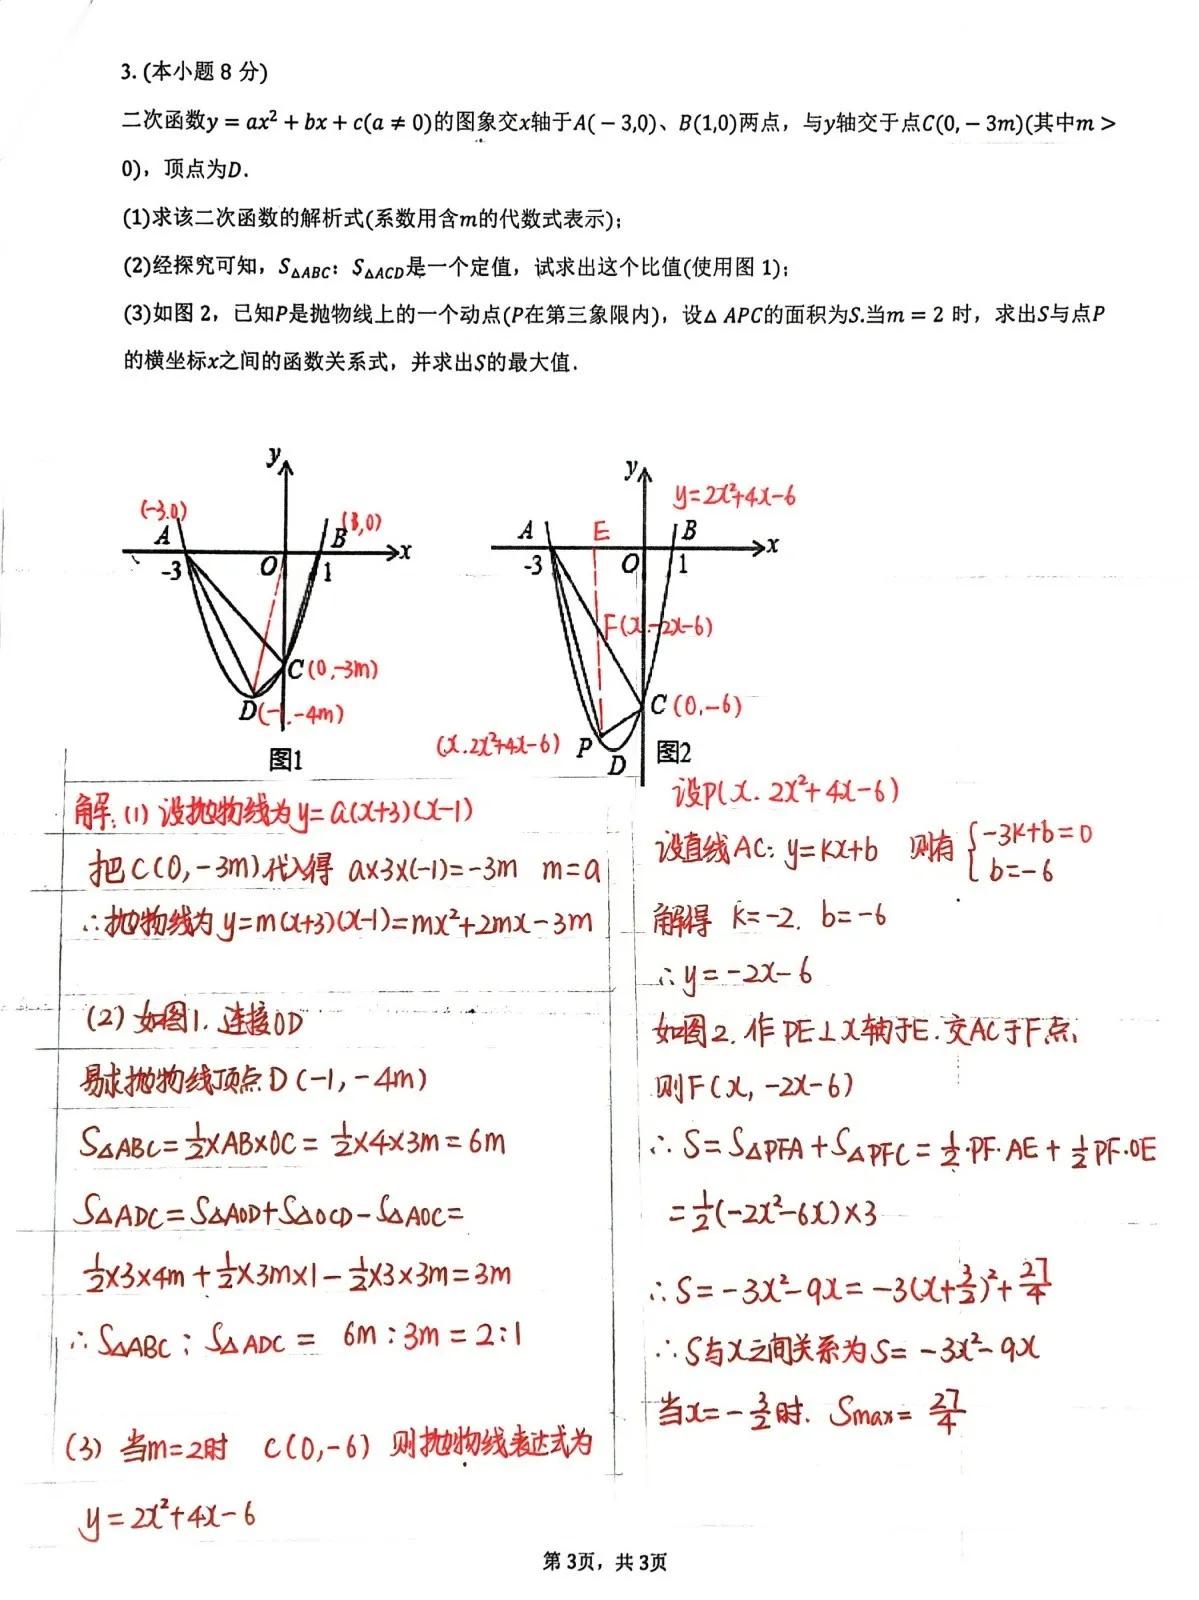 3. (本小题 8 分)
二次函数y = ax² + bx + c(a ≠ 0)的图象交x轴于A( − 3,0)、B(1,0)两点，与y轴交于点C(0, − 3m)(其中m >
0)，顶点为D.
(1)求该二次函数的解析式(系数用含m的代数式表示);
(2)经探究可知，S△ABC：S△ACD是一个定值，试求出这个比值(使用图 1);
(3)如图 2，已知P是抛物线上的一个动点(P在第三象限内)，设△ APC的面积为S.当m = 2 时，求出S与点P
的横坐标x之间的函数关系式，并求出S的最大值.
y
(-3.0)
(1,0)
A
B
x
-3
O
1
C(0,-3m)
D(-1,-4m)
图1
y
y=2x²+4x-6
A
E
B
x
-3
O
1
F(x.-2x-6)
C(0,-6)
(x.2x²+4x-6)
P
D
图2
解:(1)设抛物线为y=a(x+3)(x-1)
把C(0,-3m)代入得 a×3×(-1)=-3m m=a
∴抛物线为y=m(x+3)(x-1)=mx²+2mx-3m
(2)如图1.连接OD
易求抛物线顶点D(-1,-4m)
S△ABC=½×AB×OC=½×4×3m=6m
S△ADC=S△AOD+S△OCD-S△AOC=
½×3×4m+½×3m×1-½×3×3m=3m
∴S△ABC:S△ADC= 6m:3m=2:1
(3)当m=2时 C(0,-6) 则抛物线表达式为
y=2x²+4x-6
设P(x.2x²+4x-6)
设直线AC:y=kx+b 则有{-3k+b=0
b=-6
解得 k=-2. b=-6
∴y=-2x-6
如图2.作PE⊥x轴于E.交AC于F点,
则F(x,-2x-6)
∴S=S△PFA+S△PFC=½·PF·AE+½PF·OE
=½(-2x²-6x)×3
∴S=-3x²-9x=-3(x+3/2)²+27/4
∴S与x之间关系为S=-3x²-9x
当x=-3/2时. Smax=27/4
第 3页，共 3页